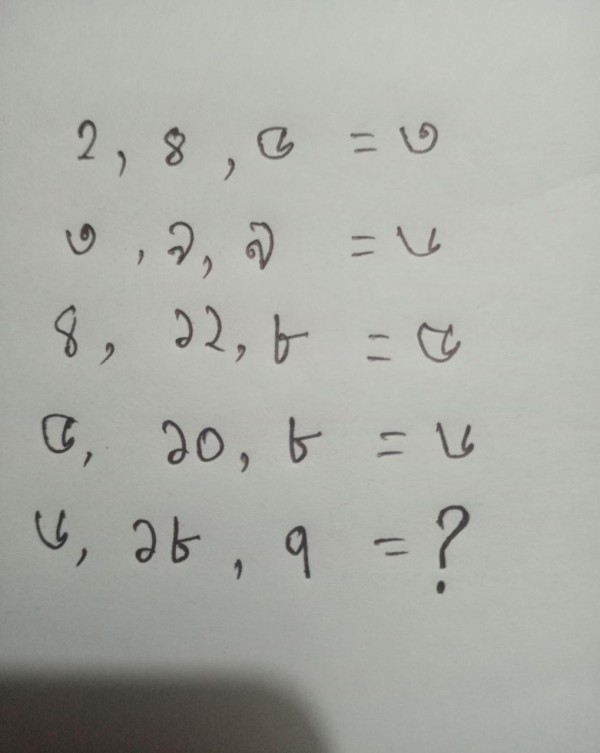 ২, ৪, ৫ = ৩
৩, ৯, ৯ = ৬
৪, ১২, ৮ = ৫
৫, ১০, ৮ = ৬
৬, ১৮, ৭ = ?